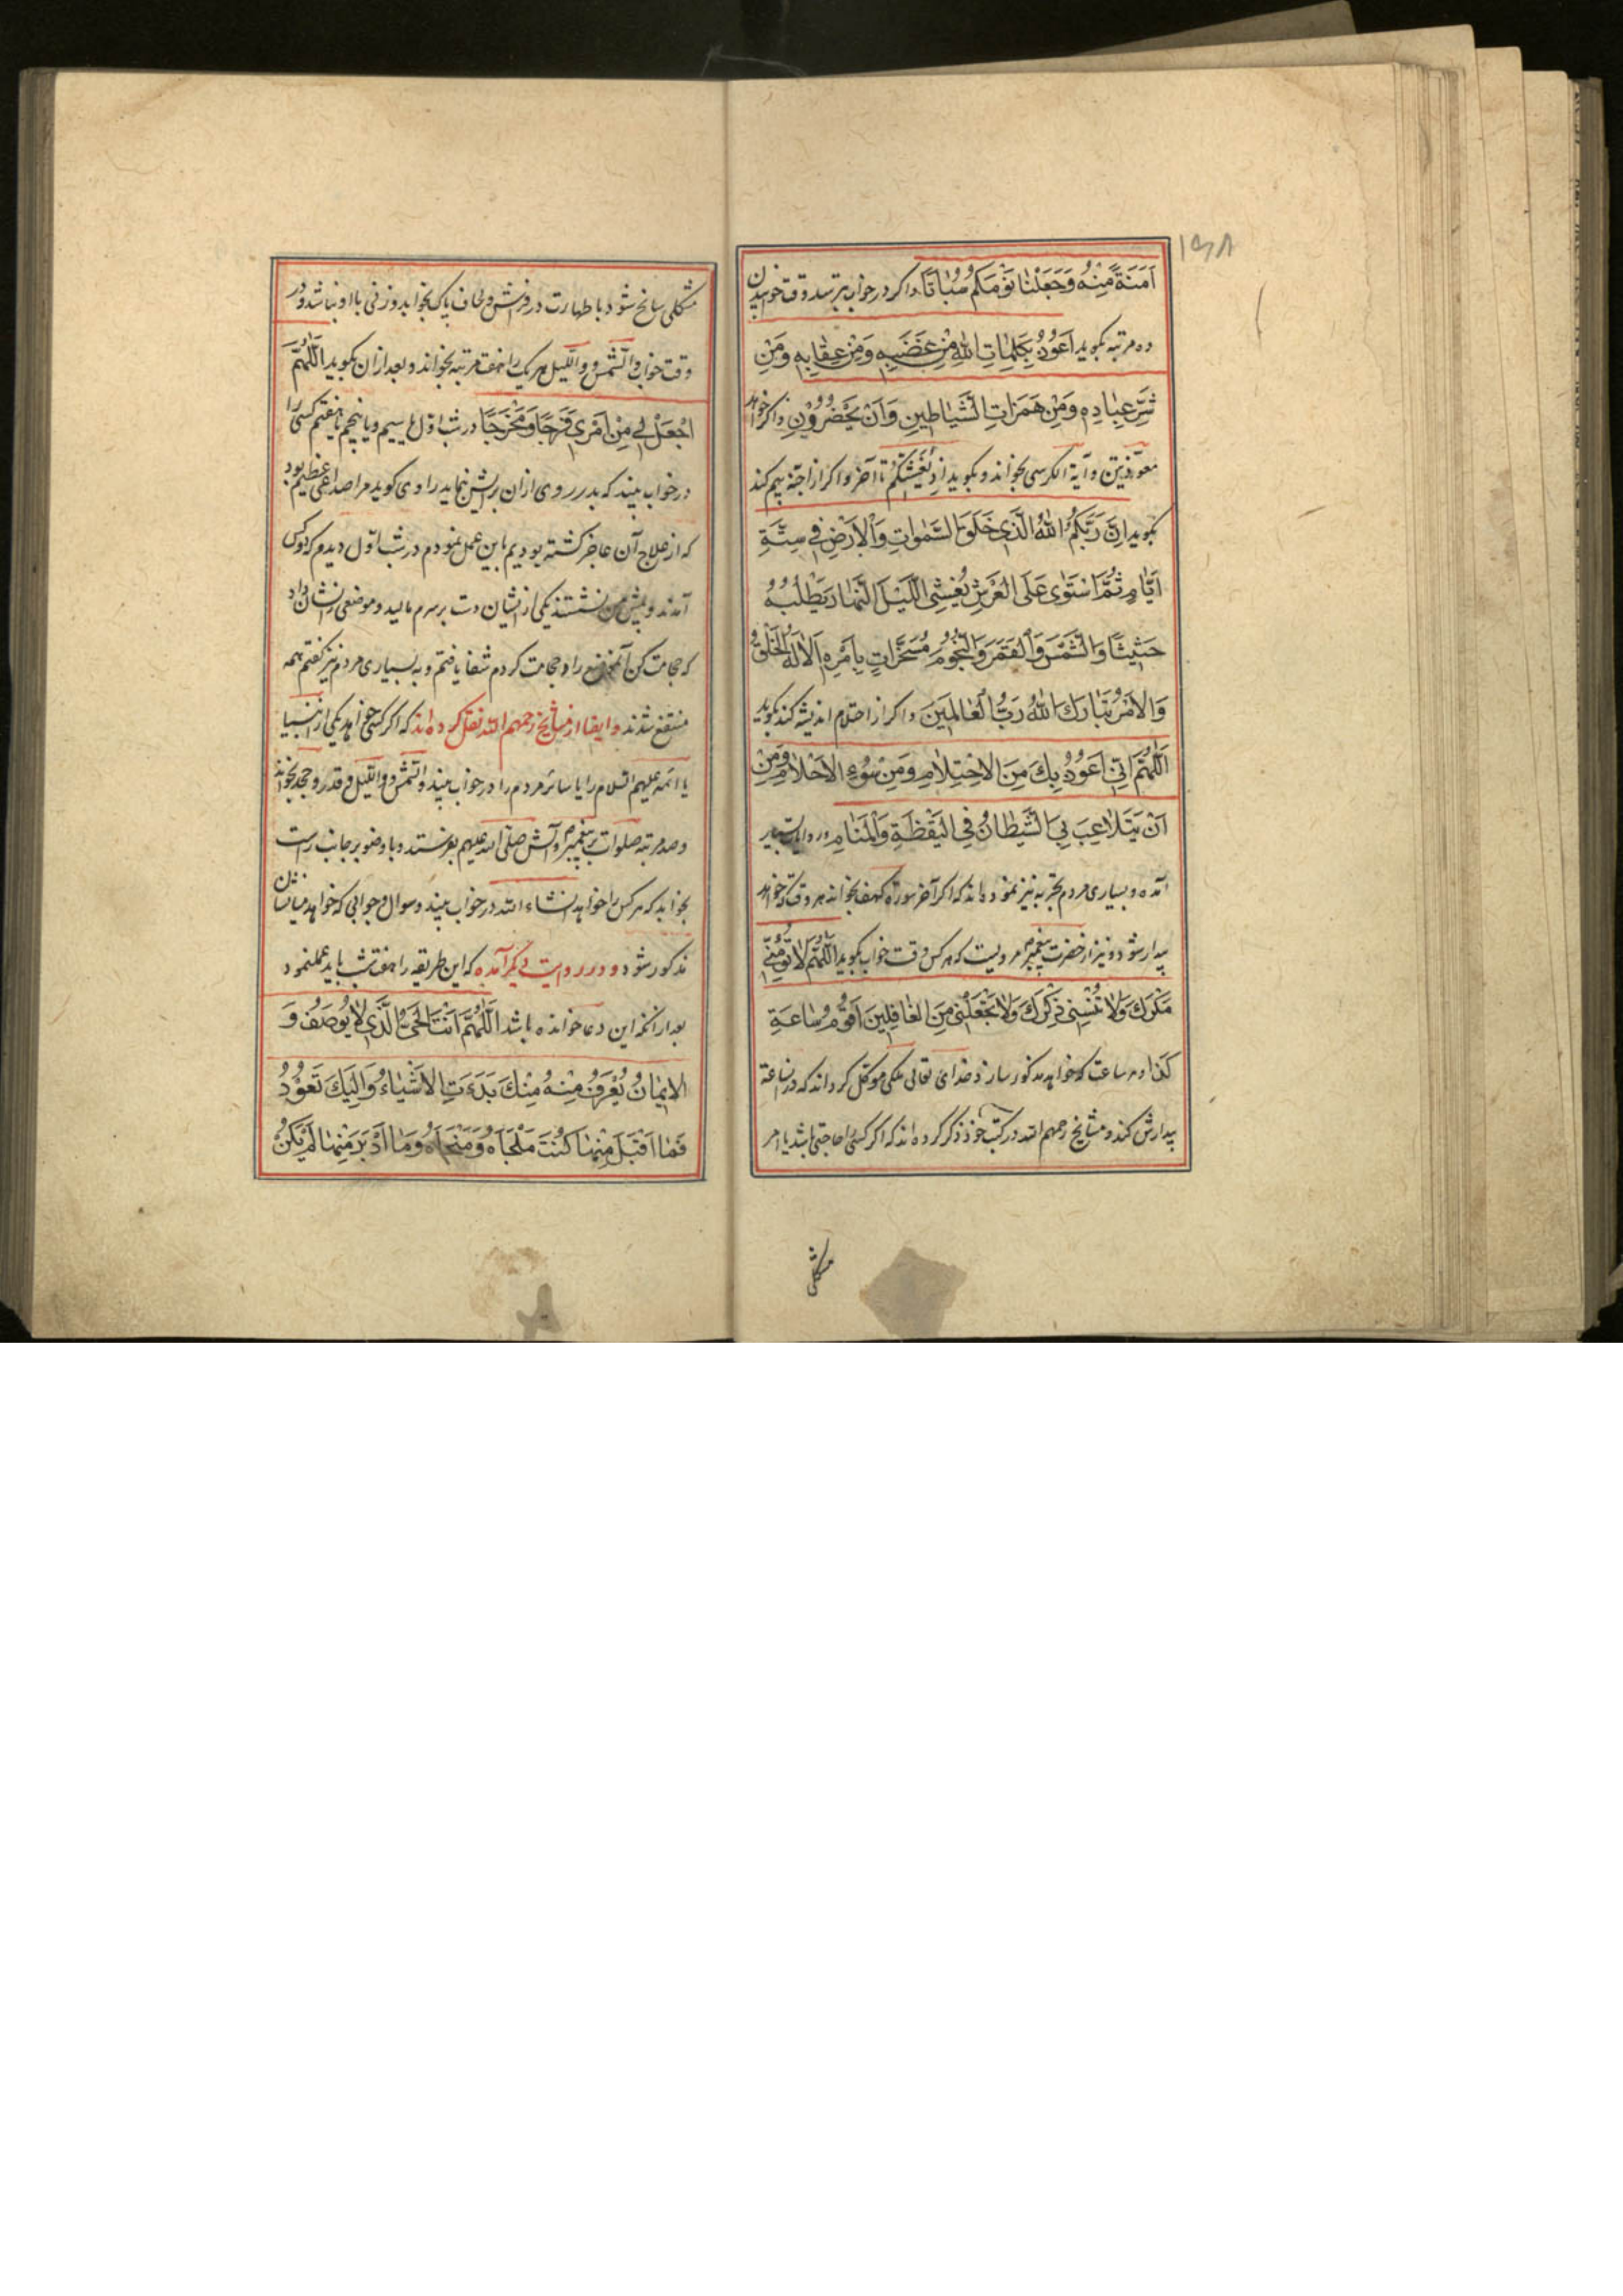 ۱۶۸
اَمَنَةً مِنْهُ وَجَعَلْنا نَوْمَكُمْ سُباتًا واکر در خواب بترسد وقت خوابیدن
ده مرتبه بکوید اَعُوذُ بِكَلِماتِ اللهِ مِنْ غَضَبِهِ وَمِنْ عِقابِهِ وَمِنْ
شَرِّ عِبادِهِ وَمِنْ هَمَزاتِ الشَّیاطِینِ وَاَنْ یَحْضُرُونِ و اکر خواهد
معوذتین و آیة الکرسی بخواند و بکوید اِذْ یُغَشِّیکُمُ تا آخر و اکر از اجنّه بیم کند
بکوید اِنَّ رَبَّکُمُ اللهُ الَّذی خَلَقَ السَّمٰواتِ وَالْاَرْضَ فی سِتَّةِ
اَیّامٍ ثُمَّ اسْتَوٰی عَلَی الْعَرْشِ یُغْشِی اللَّیْلَ النَّهارَ یَطْلُبُهُ
حَثیثًا وَالشَّمْسَ وَالْقَمَرَ وَالنُّجُومَ مُسَخَّراتٍ بِاَمْرِهِ اَلا لَهُ الْخَلْقُ
وَالْاَمْرُ تَبارَكَ اللهُ رَبُّ الْعالَمینَ و اکر از احتلام اندیشه کند بکوید
اَللّٰهُمَّ اِنّی اَعُوذُ بِكَ مِنَ الاِحْتِلامِ وَمِنْ سُوءِ الْاَحْلامِ وَمِنْ
اَنْ یَتَلاعَبَ بِیَ الشَّیْطانُ فِی الْیَقْظَةِ وَالْمَنامِ و در روایات بسیار
آمده و بسیاری مردم تجربه نیز نموده‌اند که اکر آخر سورۀ کهف بخواند هر وقت که خواهد
بیدار شود و نیز از حضرت پیغمبر مرویست که هر کس وقت خواب بکوید اَللّٰهُمَّ لا تُؤْمِنّی
مَکْرَكَ وَلا تُنْسِنی ذِکْرَكَ وَلا تَجْعَلْنی مِنَ الْغافِلینَ اَقُومُ ساعَةَ
کذا و هر ساعت که خواهد مذکور سازد خدای تعالی ملکی موکل کرداند که در آن ساعت
بیدارش کند و مشایخ رحمهم الله در کتب خود ذکر کرده‌اند که اکر کسی را حاجتی باشد یا امر
مشکلی
مشکلی سانح شود با طهارت در فرش و لحاف پاک بخوابد و زنی با او نباشد و در
وقت خواب والشّمس و واللّیل هر یک را هفت مرتبه بخواند و بعد از آن بکوید اَللّٰهُمَّ
اجْعَلْ لی مِنْ اَمْری فَرَجًا وَمَخْرَجًا در شب اوّل یا سیم و یا پنجم یا هفتم کسی را
در خواب بیند که بدر روی از آن برایش نماید راوی کوید مرا صداعی عظیم بود
که از علاج آن عاجز کشته بودیم باین عمل نمودم در شب اوّل دیدم که دو کس
آمدند و پیش من نشستند یکی از ایشان دست بر سرم مالید و موضعی را نشان داد
که حجامت کن آنموضع را و حجامت کردم شفا یافتم و به بسیاری مردم نیز کفتم همه
منتفع شدند و ایضا از مشایخ رحمهم الله نقل کرده‌اند که اکر کسی خواهد یکی از انبیا
یا ائمه علیهم السلام را یا سائر مردم را در خواب بیند والشّمس و واللّیل و قدر و جحد بخواند
و صد مرتبه صلوات بر پیغمبر و آلش صلی الله علیهم بفرستد و با وضو بر جانب راست
بخوابد که هر کس را خواهد انشاء الله در خواب بیند و سوال و جوابی که خواهد میانشان
مذکور شود و در روایت دیکر آمده که این طریقه را هفت شب باید عمل نمود
بعد از آنکه این دعا خوانده باشد اَللّٰهُمَّ اَنْتَ الْحَیُّ الَّذی لا یُوصَفُ وَ
الْایمانُ یُعْرَفُ مِنْهُ مِنْكَ بَدَءَتِ الْاَشْیاءُ وَاِلَیْكَ تَعُودُ
فَما اَقْبَلَ مِنْها کُنْتَ مَلْجَأَهُ وَمَنْجاهُ وَما اَدْبَرَ مِنْها لَمْ یَکُنْ